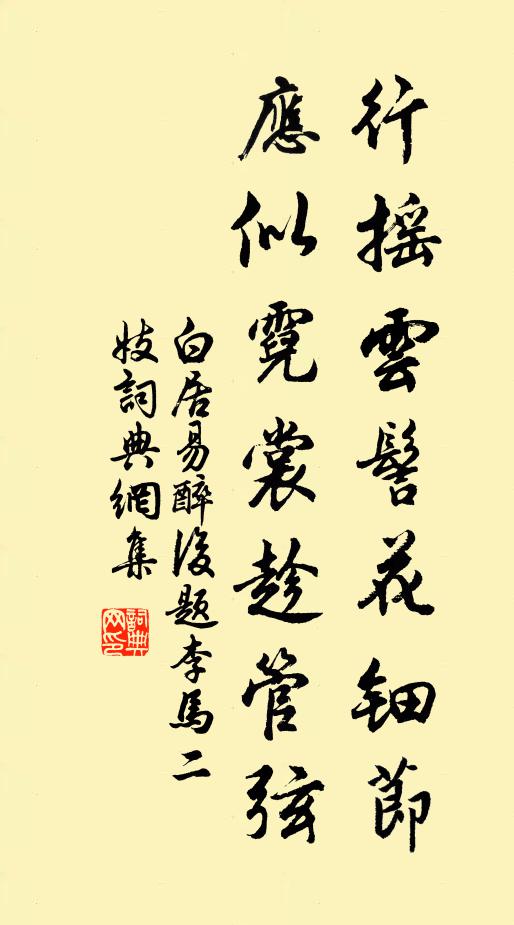 行摇雲髻花鈿節
應似霓裳趁管弦
白居易醉後題李馬二
妓詞典網集
詞典
网印